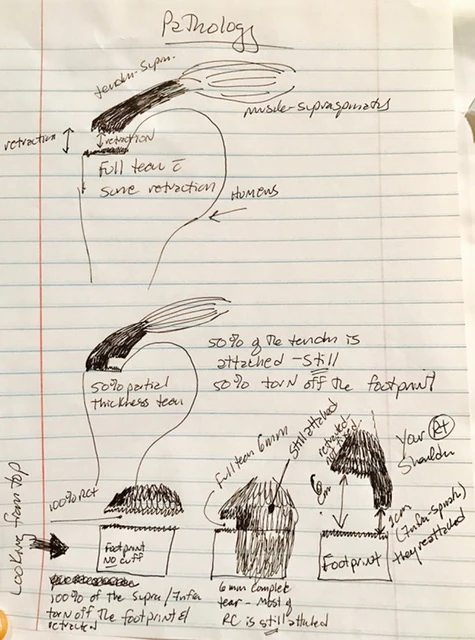 Pathology
tendon-Supra.
muscle-supraspinatus
retraction
retraction
Full tear c̄
some retraction
Humerus
50% of the tendon is
attached - Still
50% torn off the footprint
50% partial
thickness tear
Looking from top
100% RCT
Footprint
No cuff
100% of the Supra/Infra
torn off the footprint &
retracted
Full tear 6mm
Still attached
6mm complete
tear - Most of
RC is still attached
Your Rt
Shoulder
retracted
Footprint
1cm
(Infra-spinatus)
they reattached